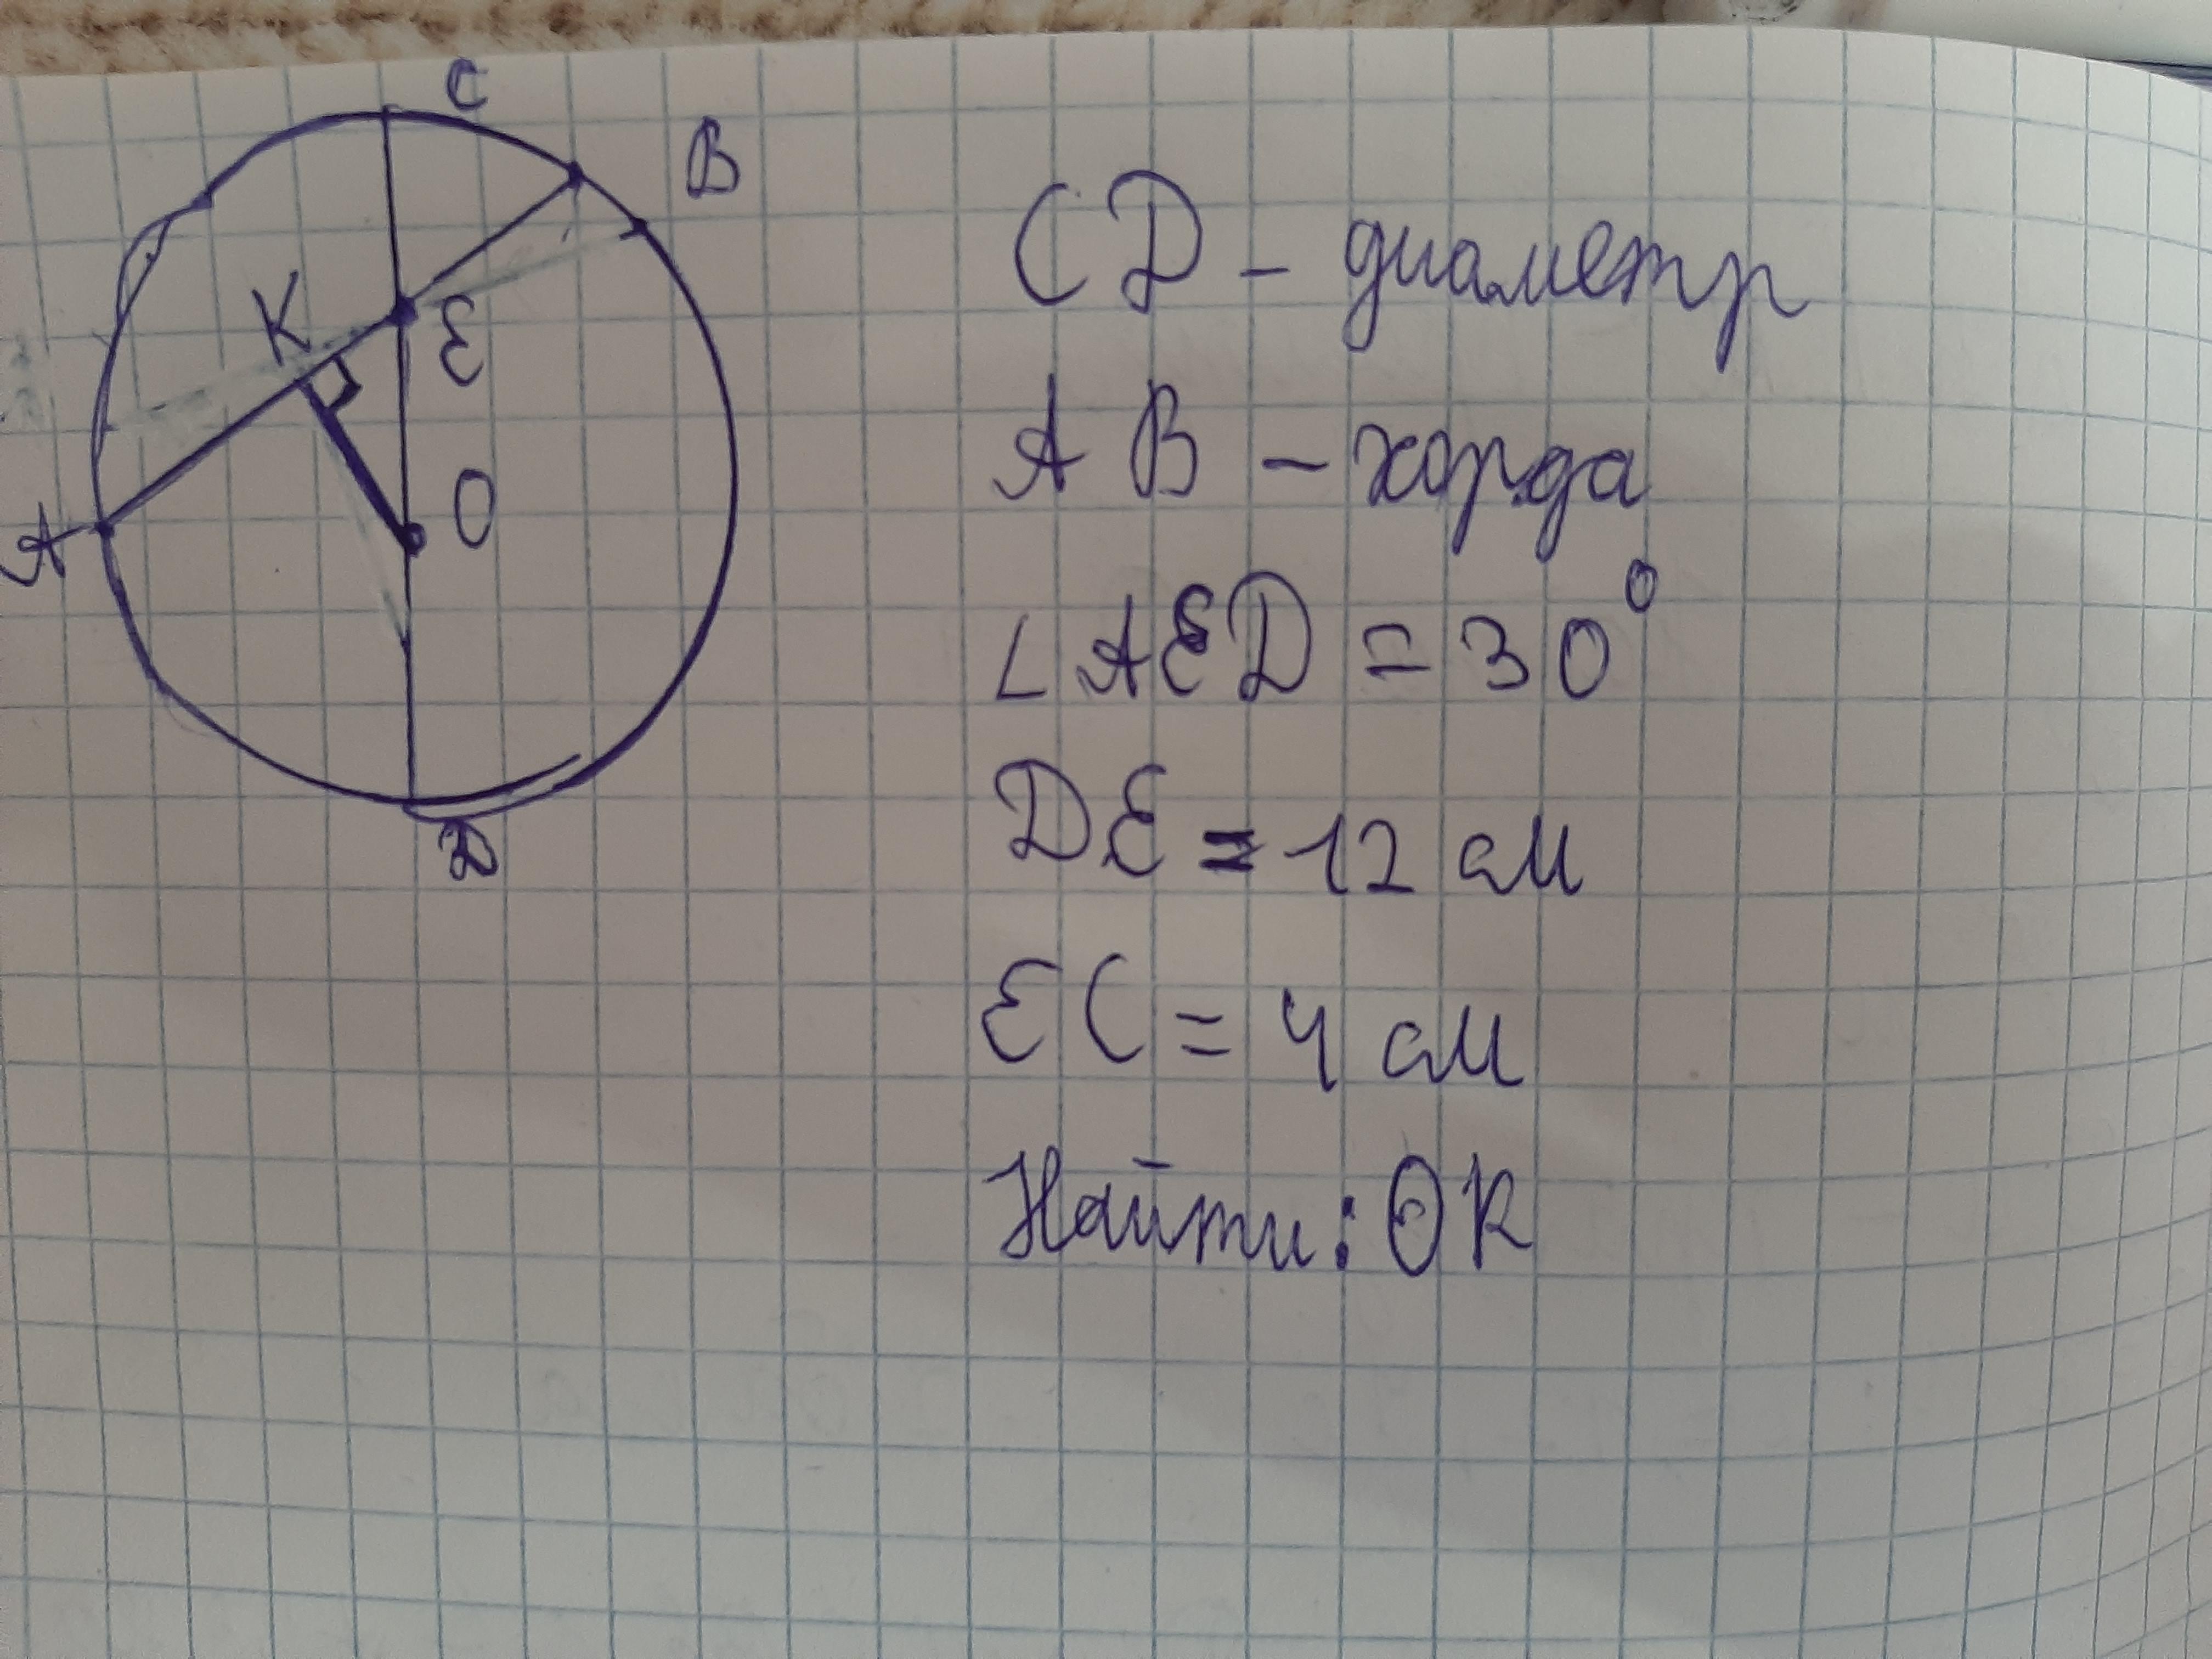 C
B
K
E
O
A
D
CD - диаметр
AB - хорда
∠AED = 30°
DE = 12 см
EC = 4 см
Найти: OK